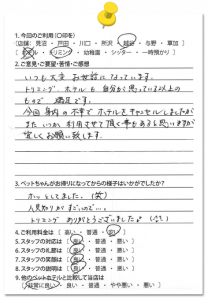 1. 今回のご利用(〇印を)
[店舗:見沼・戸田・川口・所沢・越谷・与野・草加]
[ホテル・トリミング・幼稚園・シッター・一時預かり]
2. ご意見・ご要望・苦情・ご感想
いつも大変お世話になっています。
トリミング、ホテルも自分から思っている以上の
もので満足です。
今回身内の不幸でホテルをキャンセルしましたが
またいつか利用させて頂く事もあると思いますが
宜しくお願い致します。
3. ペットちゃんがお帰りになってからの様子はいかがでしたか?
ホッとしてました。(笑)
トリミングありがとうございました♪
4. ご利用料金は[高い・普通・安い]
5. スタッフの対応は[良い・普通・悪い]
6. スタッフの礼節は[良い・普通・悪い]
7. スタッフの服装は[良い・普通・悪い]
8. スタッフの説明は[良い・普通・悪い]
9. 他のペットホテルと比較して当店は
[非常に良い・良い・普通・やや悪い・悪い]